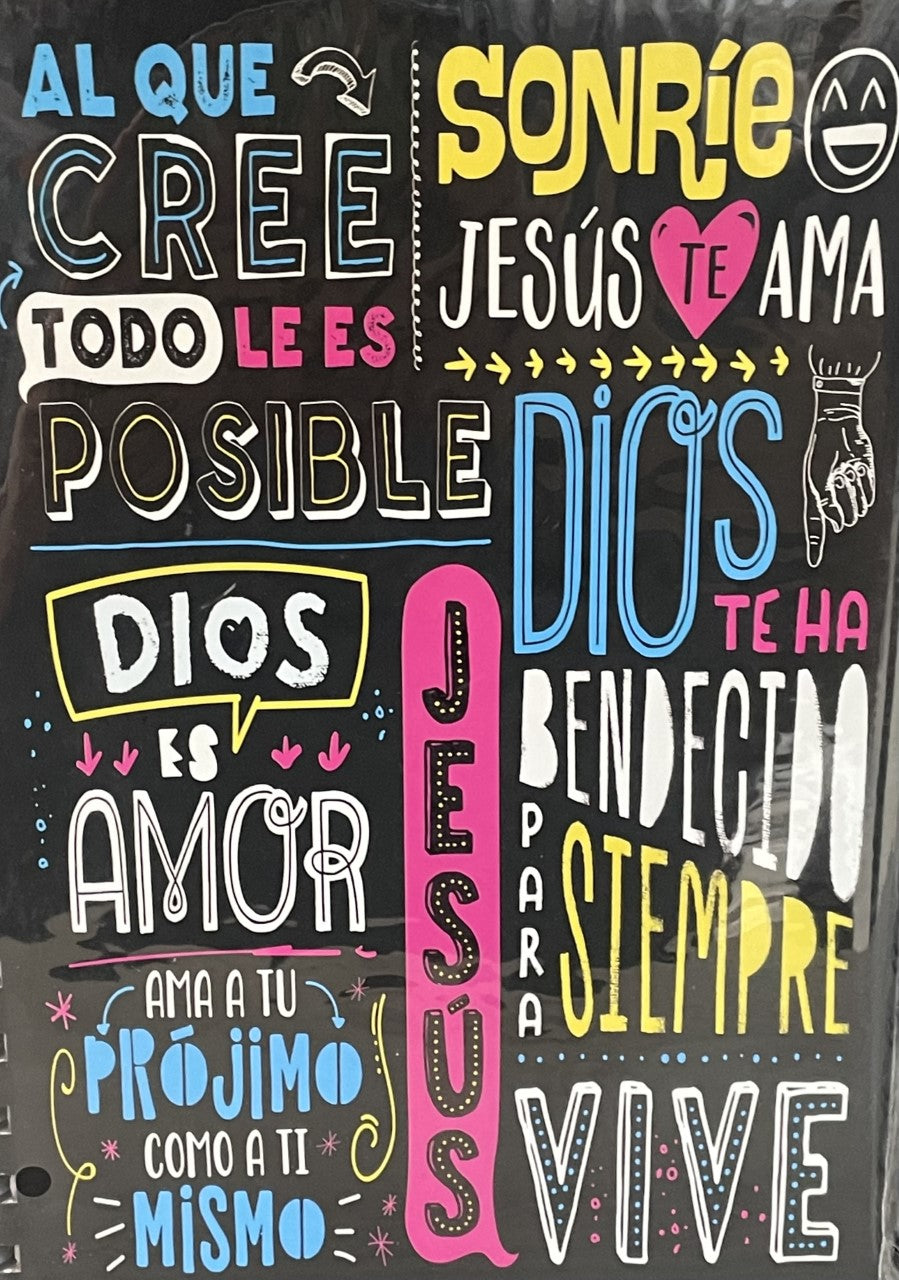 AL QUE
CREE
TODO LE ES
POSIBLE
SONRíE
JESÚS TE AMA
DiOS
TE HA
BENDECIDO
PARA
SIEMPRE
DIOS
ES
AMOR
JESÚS
VIVE
AMA A TU
PRÓJiMO
COMO A TI
MiSMO